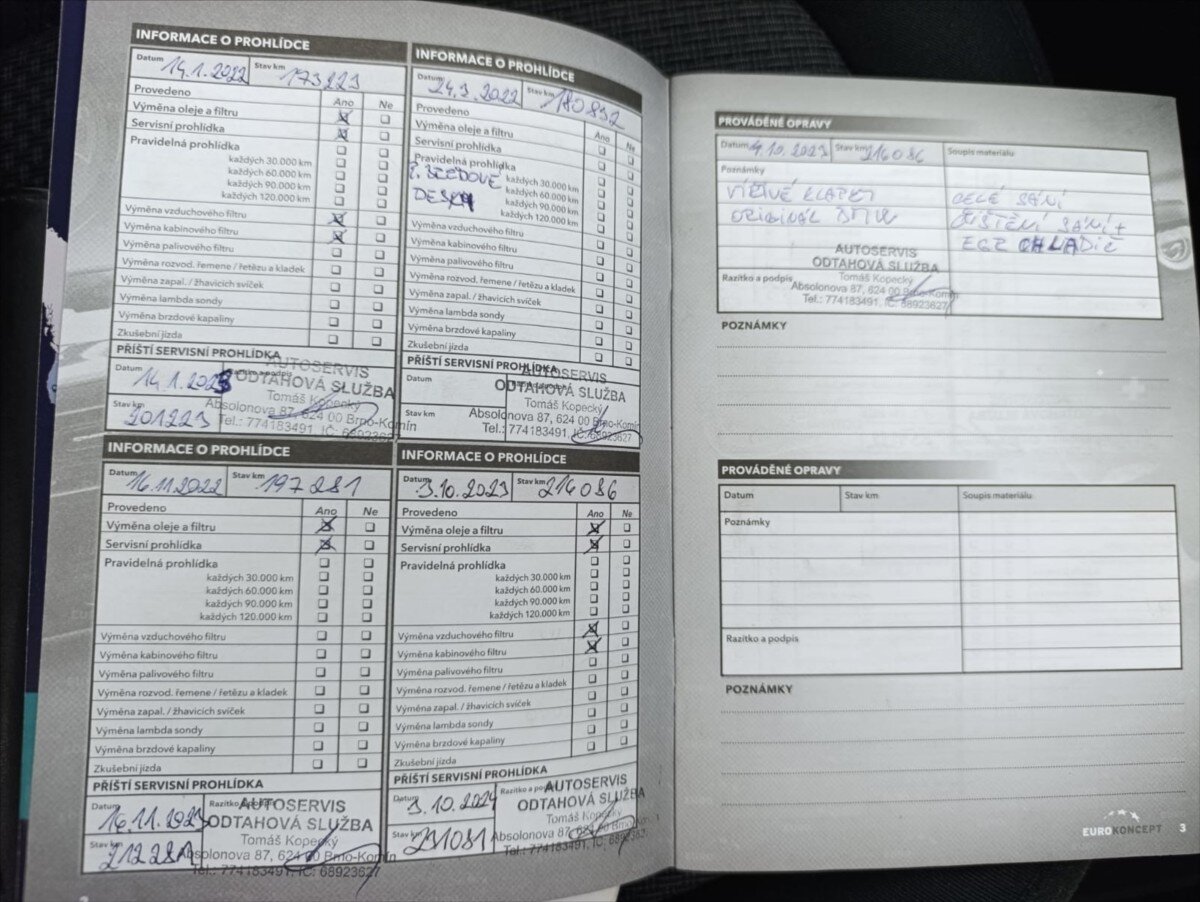 INFORMACE O PROHLÍDCE
Datum 14.1.2022 Stav km 173223
Provedeno Ano Ne
Výměna oleje a filtru
Servisní prohlídka
Pravidelná prohlídka
každých 30.000 km
každých 60.000 km
každých 90.000 km
každých 120.000 km
Výměna vzduchového filtru
Výměna kabinového filtru
Výměna palivového filtru
Výměna rozvod. řemene / řetězu a kladek
Výměna zapal. / žhavicích svíček
Výměna lambda sondy
Výměna brzdové kapaliny
Zkušební jízda
PŘÍŠTÍ SERVISNÍ PROHLÍDKA
Datum 14.1.2023 Razítko a podpis
Stav km 201223
AUTOSERVIS
ODTAHOVÁ SLUŽBA
Tomáš Kopecký
Absolonova 87, 624 00 Brno-Komín
Tel.: 774183491, IČ: 68923627
INFORMACE O PROHLÍDCE
Datum 24.3.2022 Stav km 180832
Provedeno Ano Ne
Výměna oleje a filtru
Servisní prohlídka
Pravidelná prohlídka
každých 30.000 km
každých 60.000 km
každých 90.000 km
každých 120.000 km
DESKY
Výměna vzduchového filtru
Výměna kabinového filtru
Výměna palivového filtru
Výměna rozvod. řemene / řetězu a kladek
Výměna zapal. / žhavicích svíček
Výměna lambda sondy
Výměna brzdové kapaliny
Zkušební jízda
PŘÍŠTÍ SERVISNÍ PROHLÍDKA
Datum
Stav km
AUTOSERVIS
ODTAHOVÁ SLUŽBA
Tomáš Kopecký
Absolonova 87, 624 00 Brno-Komín
Tel.: 774183491, IČ: 68923627
INFORMACE O PROHLÍDCE
Datum 16.11.2022 Stav km 197281
Provedeno Ano Ne
Výměna oleje a filtru
Servisní prohlídka
Pravidelná prohlídka
každých 30.000 km
každých 60.000 km
každých 90.000 km
každých 120.000 km
Výměna vzduchového filtru
Výměna kabinového filtru
Výměna palivového filtru
Výměna rozvod. řemene / řetězu a kladek
Výměna zapal. / žhavicích svíček
Výměna lambda sondy
Výměna brzdové kapaliny
Zkušební jízda
PŘÍŠTÍ SERVISNÍ PROHLÍDKA
Datum 16.11.2023 Razítko a podpis
Stav km 212281
AUTOSERVIS
ODTAHOVÁ SLUŽBA
Tomáš Kopecký
Absolonova 87, 624 00 Brno-Komín
Tel.: 774183491, IČ: 68923627
INFORMACE O PROHLÍDCE
Datum 3.10.2023 Stav km 216086
Provedeno Ano Ne
Výměna oleje a filtru
Servisní prohlídka
Pravidelná prohlídka
každých 30.000 km
každých 60.000 km
každých 90.000 km
každých 120.000 km
Výměna vzduchového filtru
Výměna kabinového filtru
Výměna palivového filtru
Výměna rozvod. řemene / řetězu a kladek
Výměna zapal. / žhavicích svíček
Výměna lambda sondy
Výměna brzdové kapaliny
Zkušební jízda
PŘÍŠTÍ SERVISNÍ PROHLÍDKA
Datum 3.10.2024 Razítko a podpis
Stav km 231081
AUTOSERVIS
ODTAHOVÁ SLUŽBA
Tomáš Kopecký
Absolonova 87, 624 00 Brno-Komín
Tel.: 774183491, IČ: 68923627
PROVÁDĚNÉ OPRAVY
Datum 4.10.2023 Stav km 216086 Soupis materiálu
Poznámky
VÍŘIVÉ KLAPKY CELÉ SÁNÍ
ORIGINÁL ČIŠTĚNÍ SÁNÍ +
EGR CHLADIČ
AUTOSERVIS
ODTAHOVÁ SLUŽBA
Tomáš Kopecký
Razítko a podpis Absolonova 87, 624 00 Brno-Komín
Tel.: 774183491, IČ: 68923627
POZNÁMKY
PROVÁDĚNÉ OPRAVY
Datum Stav km Soupis materiálu
Poznámky
Razítko a podpis
POZNÁMKY
EUROKONCEPT 3